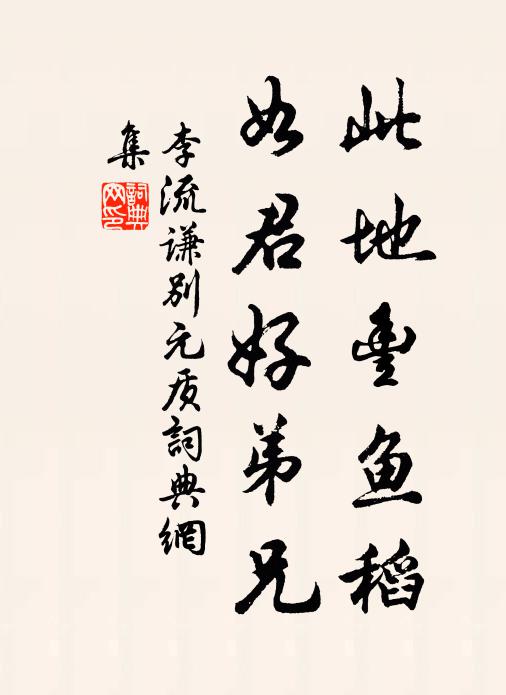 此地豊鱼稻
如君好弟兄
李流谦别元质詞典網
集
詞典
网印